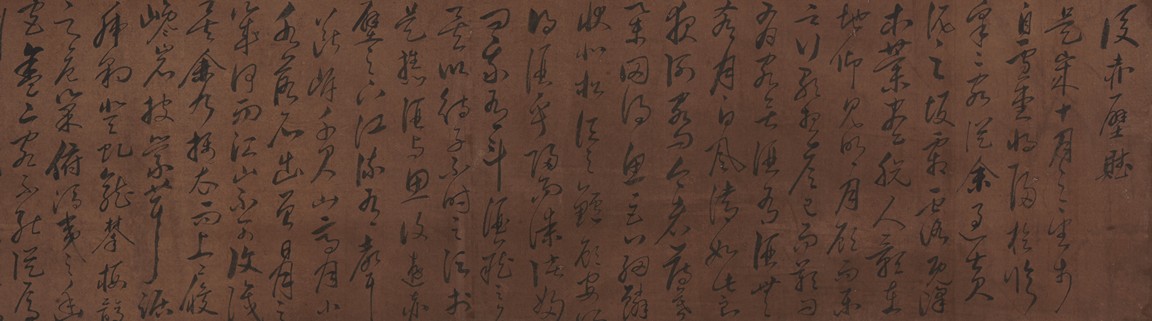 後赤壁賦
是歲十月之望步
自雪堂將歸於臨
皋二客從余過黃
泥之坂霜露既降
木葉盡脫人影在
地仰見明月顧而樂
之行歌相答已而歎曰
有客無酒有酒無
肴月白風清如此良
夜何客曰今者薄暮
舉網得魚巨口細鱗
狀似松江之鱸顧安所
得酒乎歸而謀諸婦
曰我有斗酒藏之久
矣以待子不時之須於
是攜酒與魚復遊於赤
壁之下江流有聲
斷岸千尺山高月小
水落石出曾日月之
幾何而江山不可復識
矣余乃攝衣而上履
巉岩披蒙茸踞
虎豹登虬龍攀棲鶻
之危巢俯馮夷之幽
宮蓋二客不能從焉